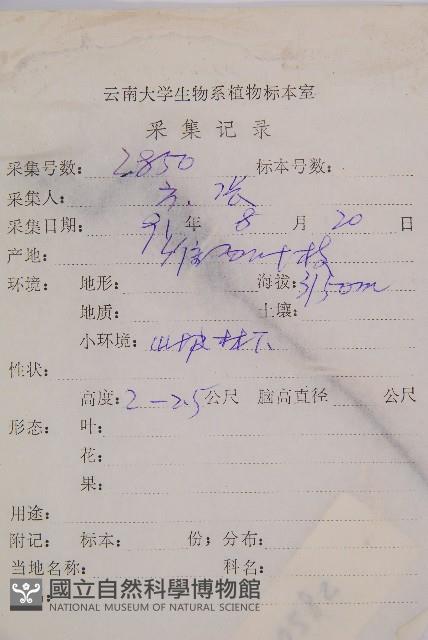 云南大学生物系植物标本室
采集记录
采集号数: 2850 标本号数:
采集人: 方、张
采集日期: 91 年 8 月 20 日
产地:
环境: 地形: 海拔: 3150m
地质: 土壤:
小环境: 山坡林下
性状:
高度: 2—2.5 公尺 胸高直径 公尺
形态: 叶:
花:
果:
用途:
附记: 标本: 份; 分布:
当地名称: 科名:
國立自然科學博物館
NATIONAL MUSEUM OF NATURAL SCIENCE